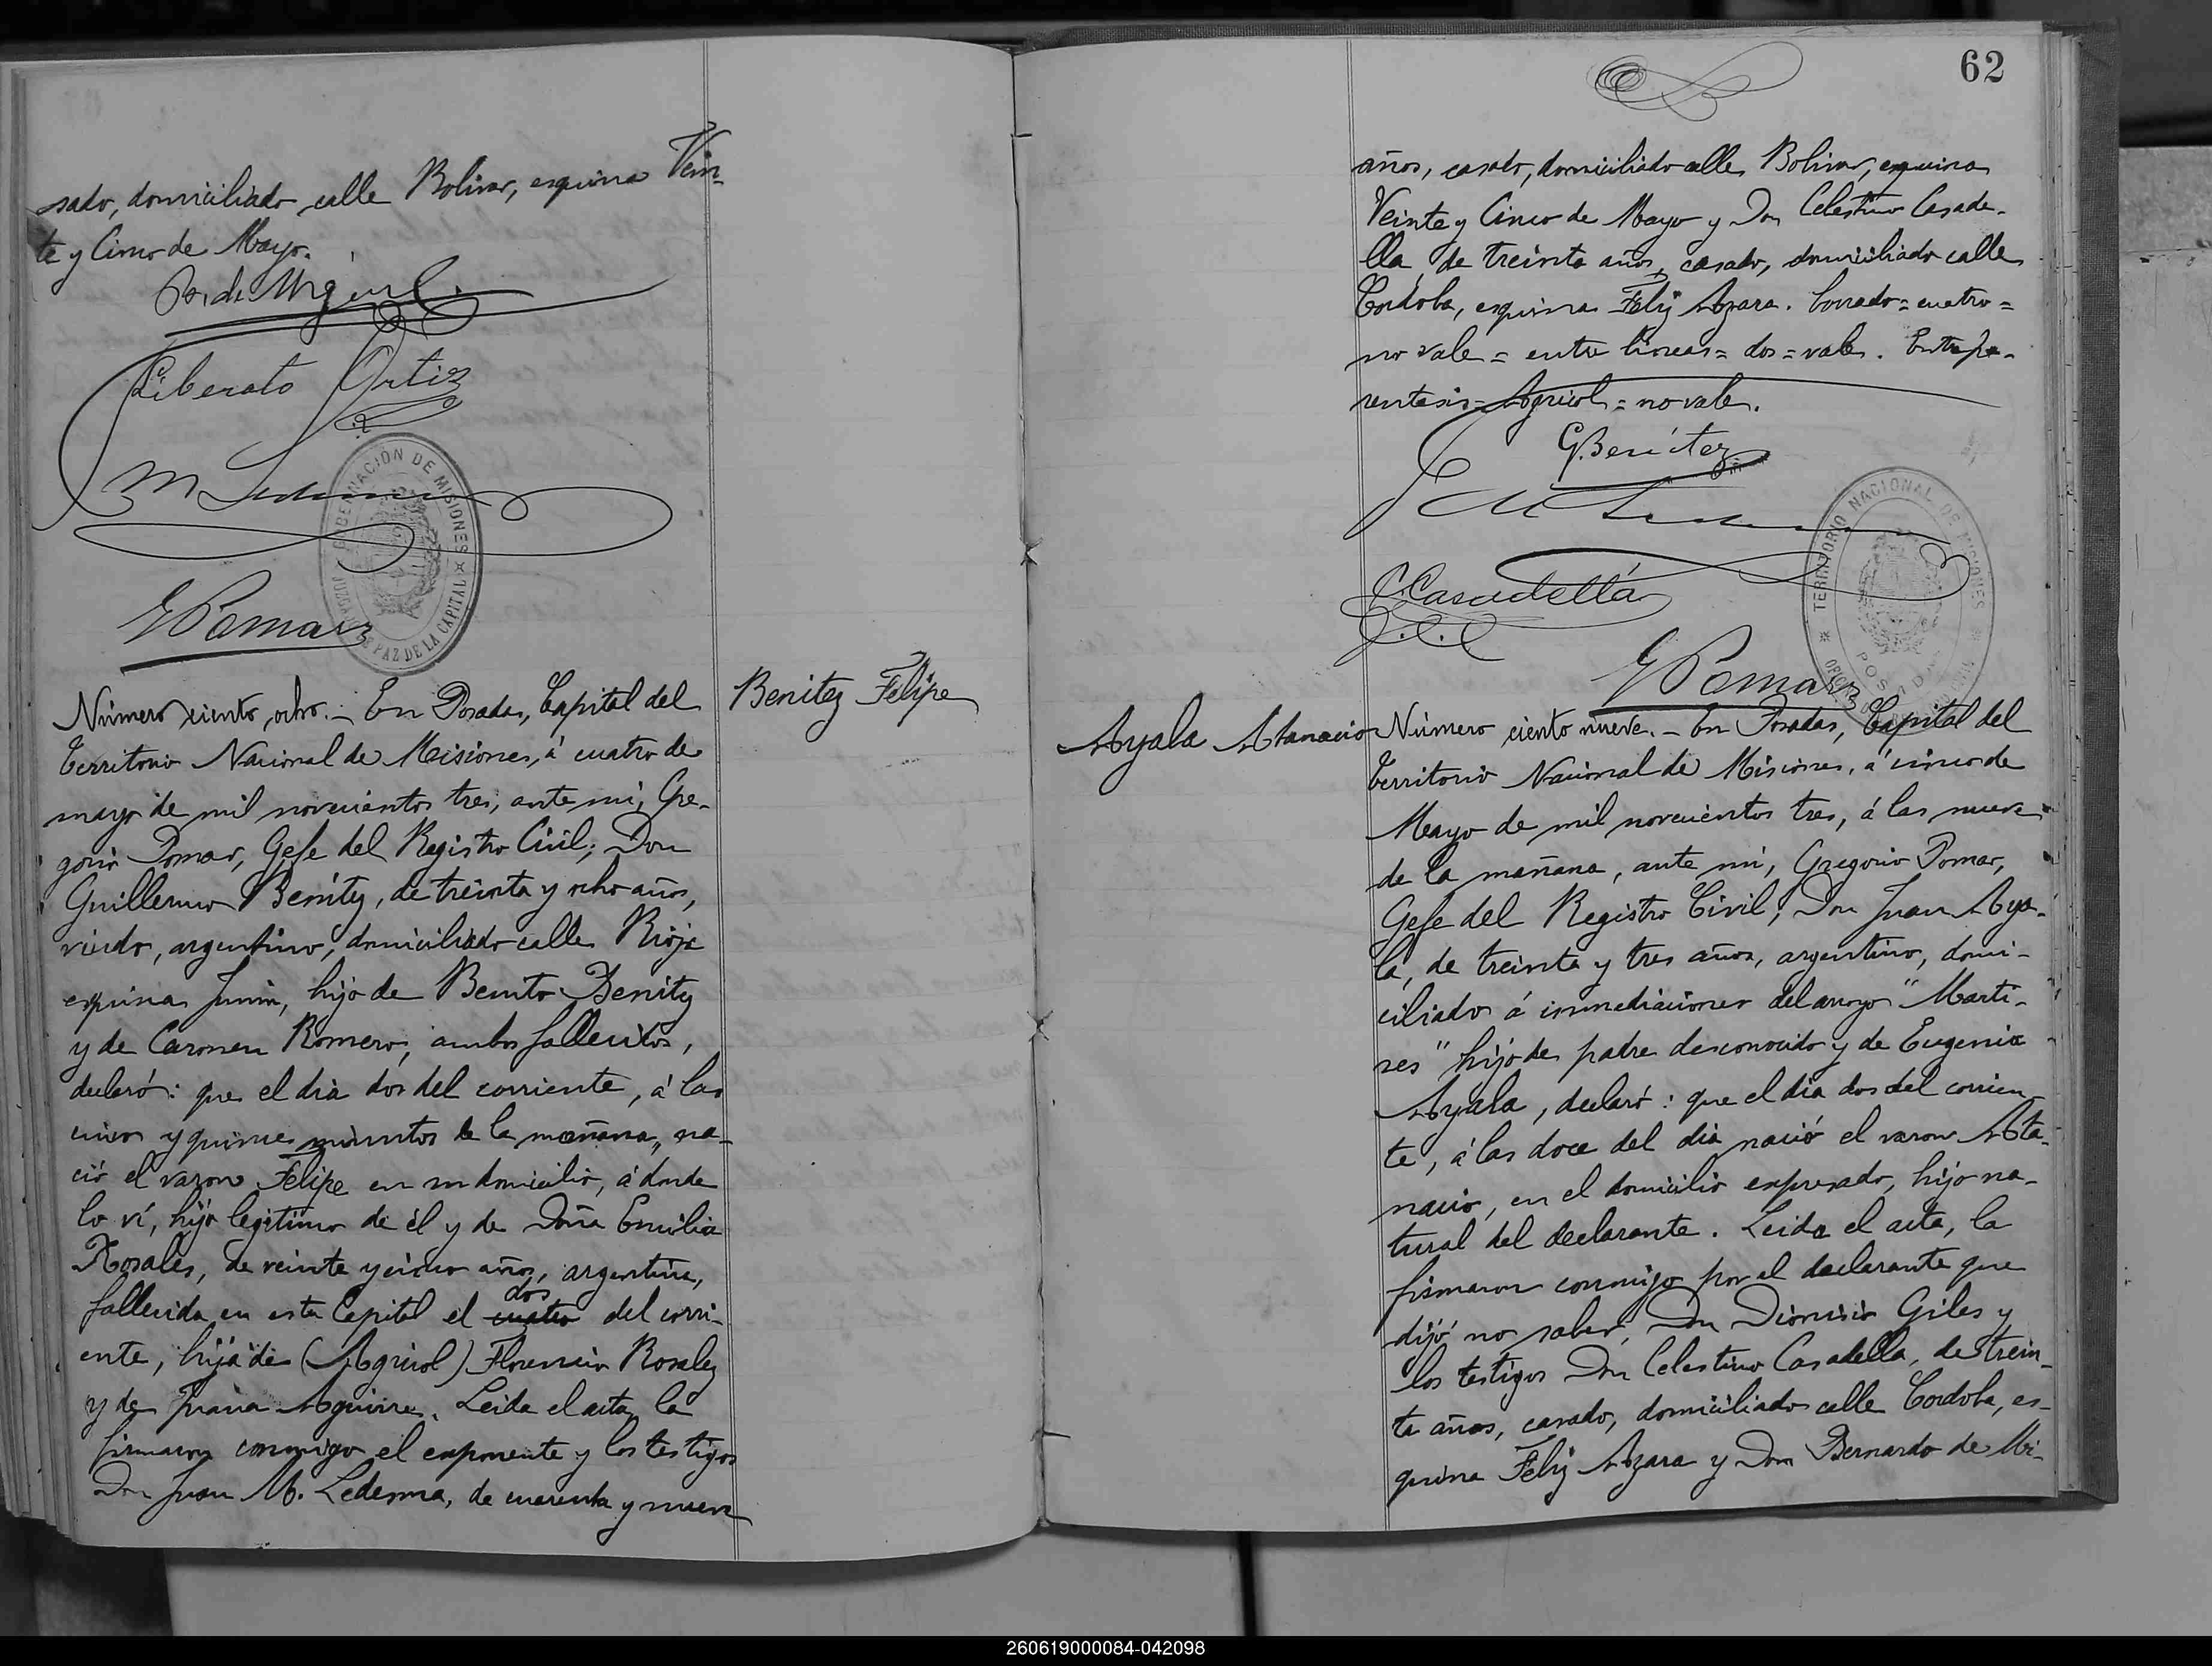 sado, domiciliado calle Bolivar, esquina Vein-
te y Cinco de Mayo.
B. de Miguel.
Liberato Ortiz
M Ledesma
GOBERNACIÓN DE MISIONES
JUZGADO DE PAZ DE LA CAPITAL
G Pomar
Número ciento ocho. - En Posadas, Capital del
Territorio Nacional de Misiones, á cuatro de
mayo de mil novecientos tres, ante mi, Gre-
gorio Pomar, Gefe del Registro Civil; Don
Guillermo Benitez, de treinta y ocho años,
viudo, argentino, domiciliado calle Rioja
esquina Junin, hijo de Benito Benitez
y de Carmen Romero, ambos fallecidos,
declaró: que el dia dos del corriente, á las
cinco y quince minutos de la mañana, na-
ció el varon Felipe en su domicilio, á donde
lo ví, hijo legitimo de él y de Doña Emilia
Rosales, de veinte y cinco años, argentina,
dos
fallecida en esta Capital el cuatro del corri-
ente, hija de (Agricol) Florencio Rosales
y de Juana Aguirre. Leida el acta, la
firmaron conmigo el exponente y los testigos
Don Juan M. Ledesma, de cuarenta y nueve
Benitez Felipe
62
años, casado, domiciliado calle Bolivar, esquina
Veinte y Cinco de Mayo y Don Celestino Casade-
lla, de treinta años, casado, domiciliado calle
Cordoba, esquina Feliz Azara. Borrado = cuatro =
no vale = entre lineas = dos = vale. Entre pa-
rentesis = Agricol = no vale.
G. Benítez
M Ledesma
C. Casadellá
TERRITORIO NACIONAL DE MISIONES
POSADAS
G Pomar
Ayala Atanacio
Número ciento nueve. - En Posadas, Capital del
Territorio Nacional de Misiones, á cinco de
Mayo de mil novecientos tres, á las nueve
de la mañana, ante mi, Gregorio Pomar,
Gefe del Registro Civil; Don Juan Aya-
la, de treinta y tres años, argentino, domi-
ciliado á inmediaciones del arroyo "Marti-
res" hijo de padre desconocido y de Eugenia
Ayala, declaró: que el dia dos del corrien-
te, á las doce del dia nació el varon Ata-
nacio, en el domicilio expresado, hijo na-
tural del declarante. Leida el acta, la
firmaron conmigo por el declarante que
dijó no saber, Don Dionisio Giles y
los testigos Don Celestino Casadella, de trein-
ta años, casado, domiciliado calle Cordoba, es-
quina Feliz Azara y Don Bernardo de Mi-
260619000084-042098